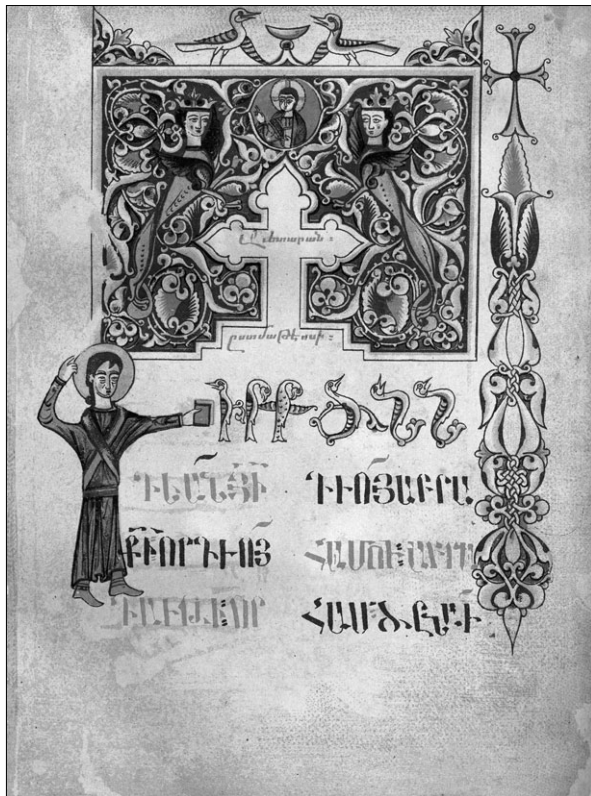 Աւետարան ։
ըստ մաթէոսի ։
ԳԻՐՔ ԾՆՆ
ԴԵԱՆ ՅԻ
ՔԻ ՈՐԴՒՈՅ
ԴԱՒԹԻ։ ՈՐ
ԴՒՈՅ ԱԲՐԱ
ՀԱՄՈՒ։ ԱԲՐԱ
ՀԱՄ ԾՆԱՒ